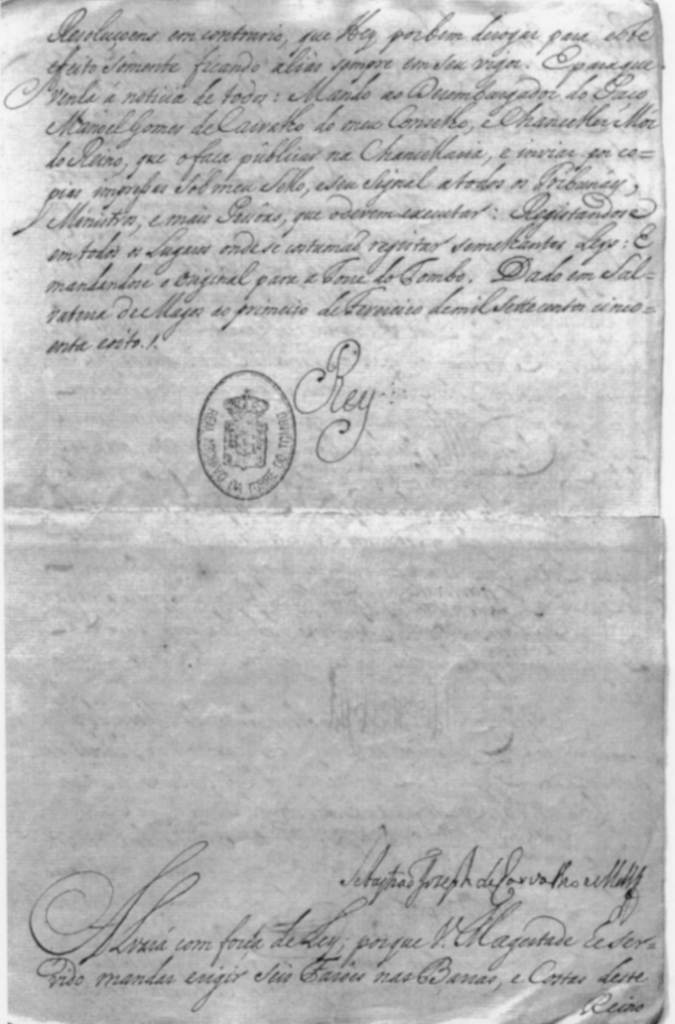 Resoluçoens em contrario, que Hey por bem derogar para este
efeito sómente ficando aliàs sempre em seu vigor. E para que
venha á noticia de todos: Mando ao Desembargador do Paço
Manoel Gomes de Carvalho do meu Conselho, e Chanceller Mór
do Reino, que o faça publicar na Chancellaria, e inviar por co=
pias impressas sob meu Sello, e seu signal a todos os Tribunáes,
Ministros, e mais Pessoas, que o devem executar: Registandose
em todos os Lugares onde se costumaõ registar semelhantes Leys: E
mandandose o Original para a Torre do Tombo. Dado em Sal=
vaterra de Magos ao primeiro de Fevereiro de mil sette centos cinco=
enta e oito.
Rey
REAL ARCHIVO DA TORRE DO TOMBO
Sebastiaõ Joseph de Carvalho e Mello
Alvará com força de Ley, porque V. Magestade he ser=
vido mandar erigir seis Faróes nas Barras, e Costas deste
Reino